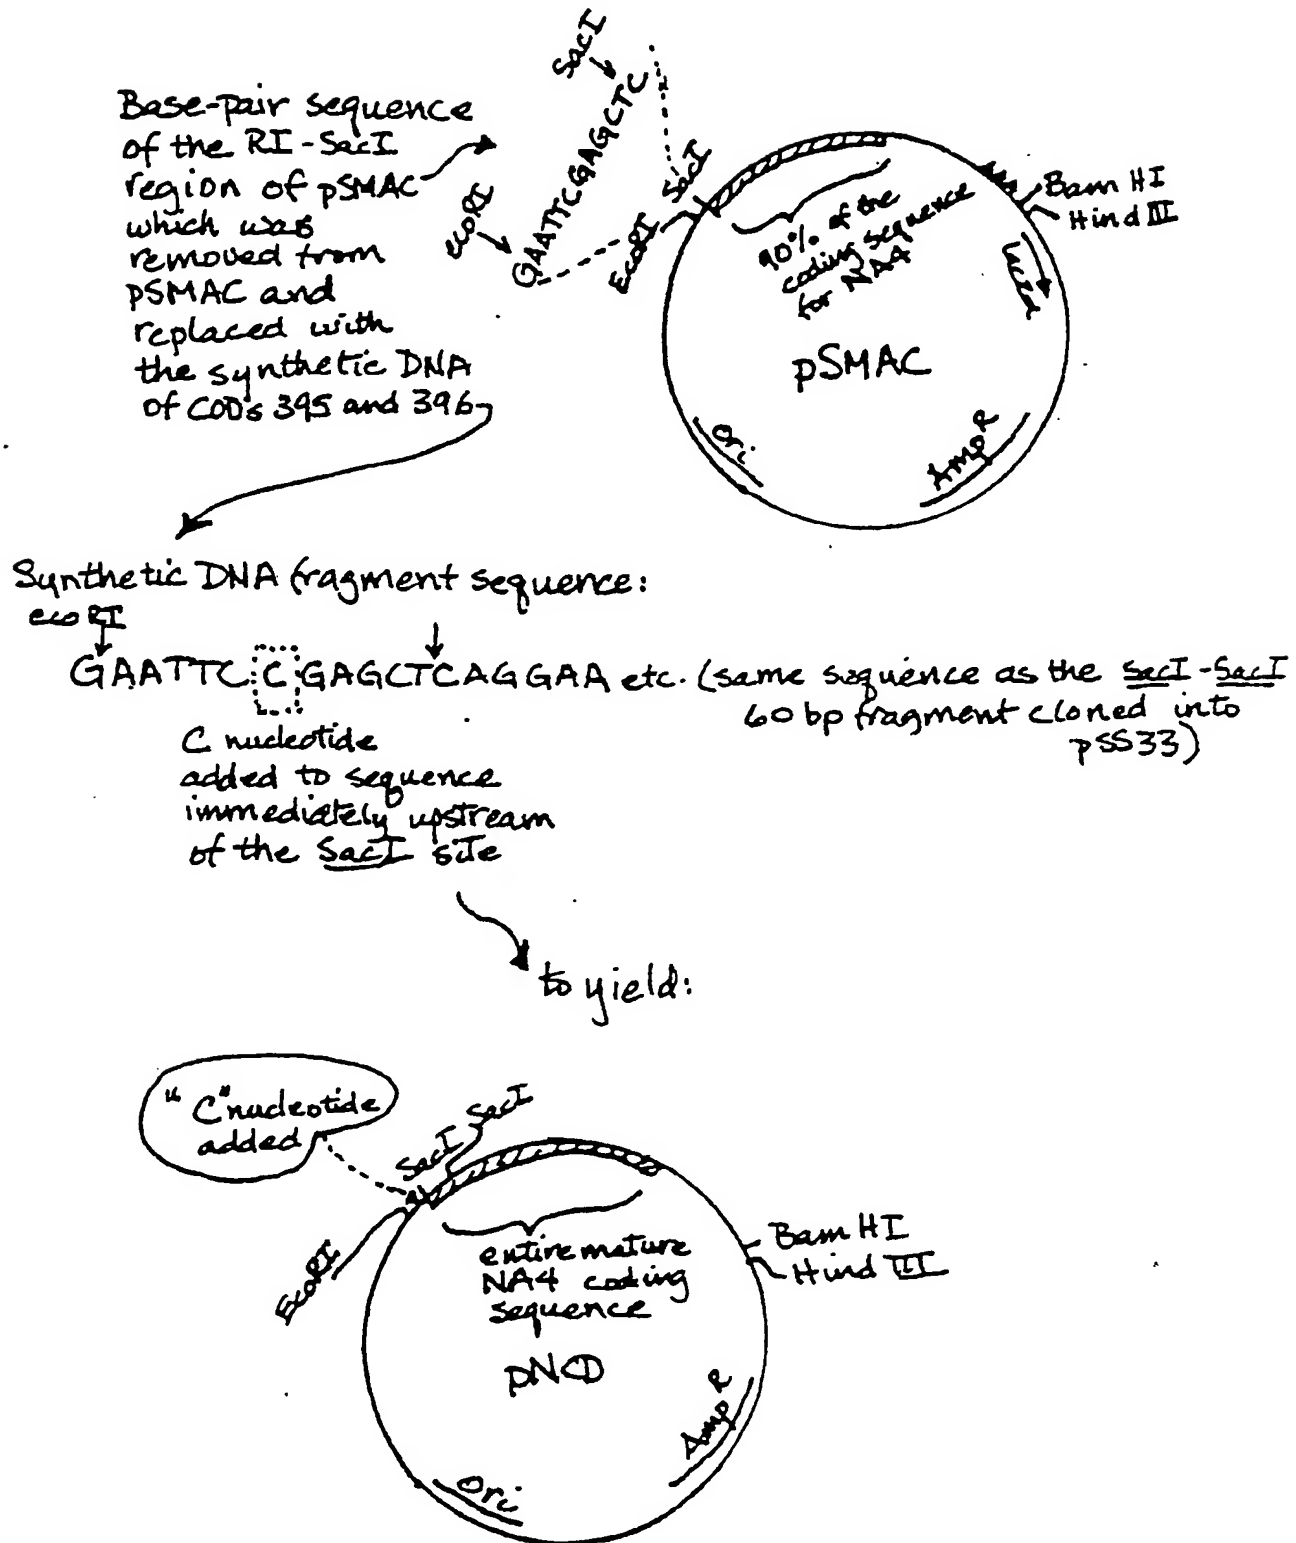 SacI
Base-pair sequence
of the RI-SacI
region of pSMAC
which was
removed from
pSMAC and
replaced with
the synthetic DNA
of COD's 395 and 396
ecoRI
GAATTCGAGCTC
EcoRI
SacI
90% of the
coding sequence
for NA4
pSMAC
Bam HI
Hind III
Ori
Amp R
Synthetic DNA fragment sequence:
ecoRI
GAATTC C GAGCTCAGGAA etc. (same sequence as the SacI-SacI
60 bp fragment cloned into
pSS33)
C nucleotide
added to sequence
immediately upstream
of the SacI site
to yield:
"C" nucleotide
added
SacI
SacI
EcoRI
entire mature
NA4 coding
sequence
pNCD
Bam HI
Hind III
Ori
Amp R